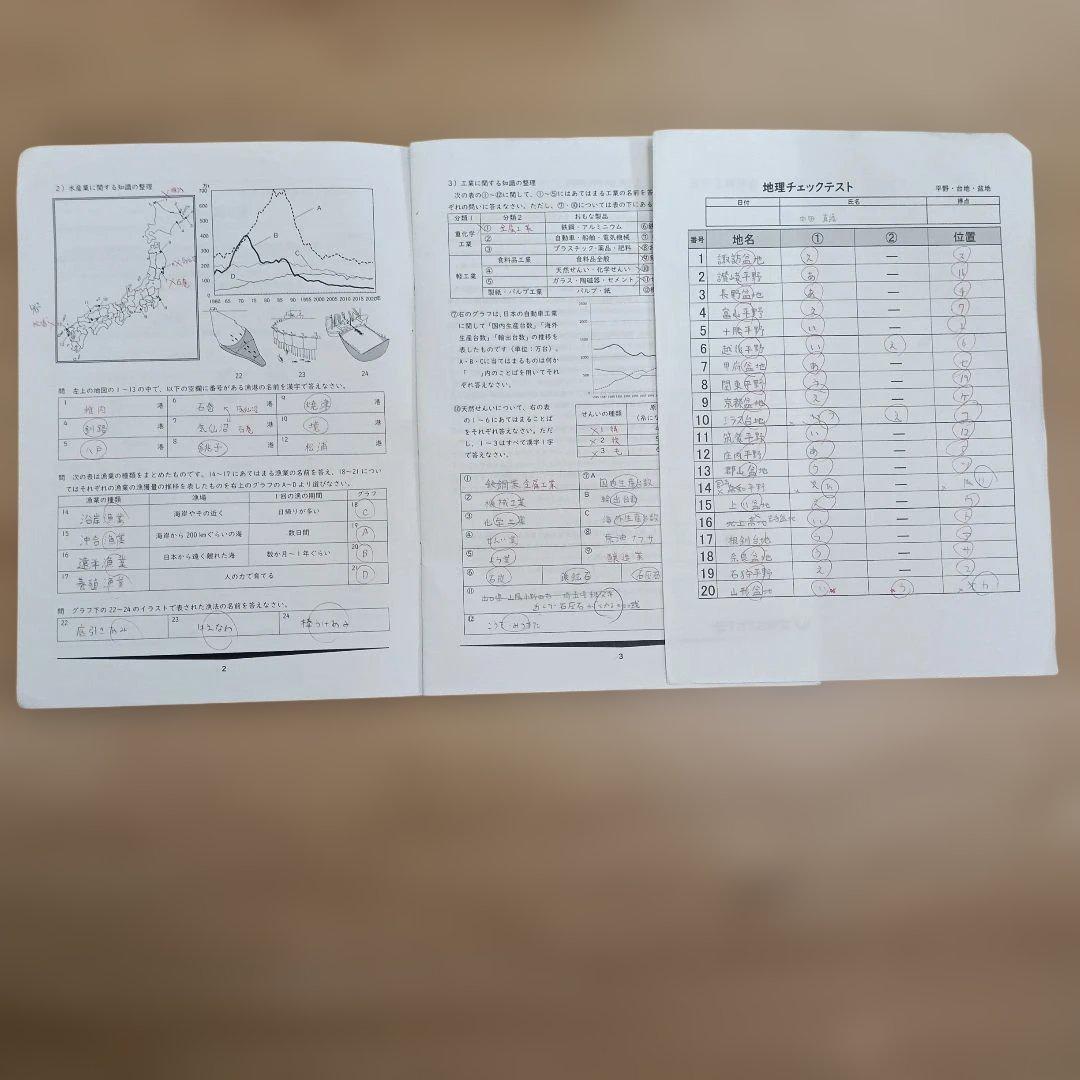 2）水産業に関する知識の整理
万t
700
600
500
400
300
200
100
0
A
B
C
D
1960 65 70 75 80 85 90 95 2000 2005 2010 2015 2020年
22 23 24
問 左上の地図の1～13の中で、以下の空欄に番号がある漁港の名前を漢字で答えなさい。
1 稚内 港 6 石巻 港 9 焼津 港
4 釧路 港 7 気仙沼 石巻 港 10 境 港
5 八戸 港 8 銚子 港 12 松浦 港
問 次の表は漁業の種類をまとめたものです。14～17にあてはまる漁業の名前を答え、18～21につい
てはそれぞれの漁業の漁獲量の推移を表したものを右上のグラフのA～Dより選びなさい。
漁業の種類 漁場 1回の漁の期間 グラフ
14 沿岸漁業 海岸やその近く 日帰りが多い 18 C
15 沖合漁業 海岸から200kmぐらいの海 数日間 19 A
16 遠洋漁業 日本から遠く離れた海 数か月～1年ぐらい 20 B
17 養殖漁業 人の力で育てる 21 D
問 グラフ下の22～24のイラストで表された漁法の名前を答えなさい。
22 底引きあみ 23 はえなわ 24 棒うけあみ
2
3）工業に関する知識の整理
次の表の①～⑫に関して、①～⑤にはあてはまる工業の名前を答
ぞれの問いに答えなさい。ただし、⑦・⑩については表の下にある
分類1 分類2 おもな製品
重化学工業 ① 金属工業 鉄鋼・アルミニウム
② 自動車・船舶・電気機械
③ プラスチック・薬品・肥料
軽工業 食料品工業 食料品全般
④ 天然せんい・化学せんい
⑤ ガラス・陶磁器・セメント
製紙・パルプ工業 パルプ・紙
⑦右のグラフは、日本の自動車工業
に関して「国内生産台数」「海外
生産台数」「輸出台数」の推移を
表したものです（単位：万台）。
A・B・Cに当てはまるものは何か
「 」内のことばを用いてそれ
ぞれ答えなさい。
⑩天然せんいについて、右の表
の1～6にあてはまることば
をそれぞれ答えなさい。ただ
し、1～3はすべて漢字1字
で答えなさい。
せんいの種類
① 鉄鋼業 金属工業 ⑦A 国内生産台数
② 機械工業 B 輸出台数
③ 化学工業 C 海外生産台数
④ せんい業 ⑧
⑤ よう業 ⑨ 醸造業
⑥ 石炭 鉄鉱石 石灰石
⑪
⑫ こうぞ・みつまた
3
地理チェックテスト 平野・台地・盆地
日付 氏名 得点
番号 地名 ① ② 位置
1 諏訪盆地 え ー
2 讃岐平野 あ ー
3 長野盆地 あ ー
4 富山平野 え ー 7
5 十勝平野 い ー
6 越後平野 い え 6
7 甲府盆地 あ ー
8 関東平野 う ー
9 京都盆地 え ー
10 シラス台地 う え
11 筑後平野 い ー 12
12 庄内平野 あ ー
13 郡山盆地 う ー
14 ー
15 上川盆地 え ー
16 北上高地 北上盆地 い ー
17 根釧台地 う ー
18 奈良盆地 う ー
19 石狩平野 え ー 2
20 山形盆地 い う